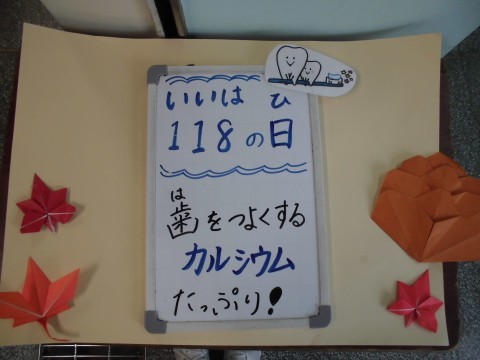 いいは ひ
118の日
は
歯をつよくする
カルシウム
たっぷり!